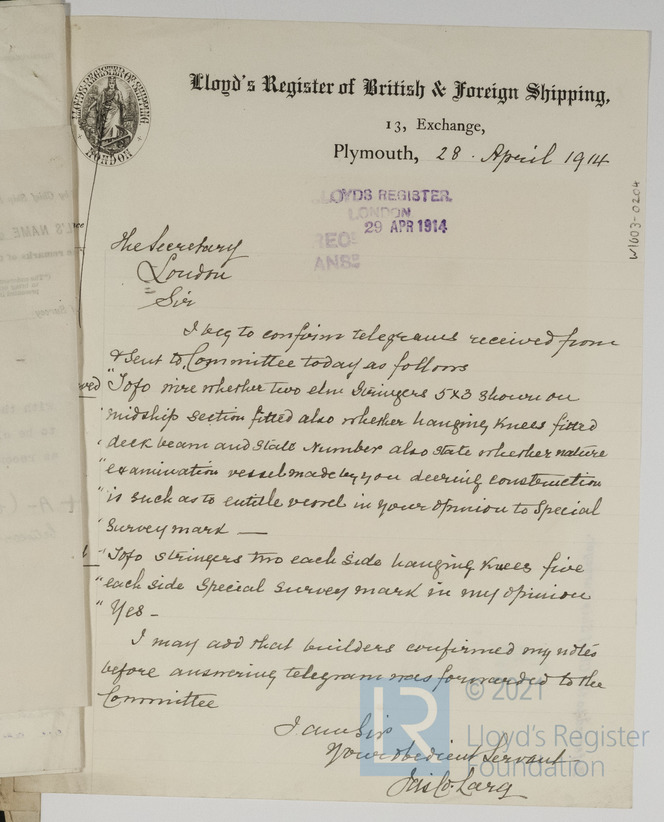 LLOYD'S REGISTER OF SHIPPING
LONDON
Lloyd's Register of British & Foreign Shipping,
13, Exchange,
Plymouth, 28 April 1914
LLOYDS REGISTER,
LONDON
29 APR 1914
W1603-0204
The Secretary
London
Sir
I beg to confirm telegrams received from
& sent to Committee today as follows
"Tofo wire whether two elm stringers 5x3 shown on
"midship section fitted also whether hanging knees fitted
"deck beam and state number also state whether nature
"examination vessel made by you deering construction
"is such as to entitle vessel in your opinion to Special
"Survey mark —
"Tofo stringers two each side hanging knees five
"each side Special Survey mark in my opinion
"Yes -
I may add that builders confirmed my notes
before answering telegram was forwarded to the
Committee
I am Sir
Your obedient Servant
Jas. Larg
LR © 2021
Lloyd's Register
Foundation